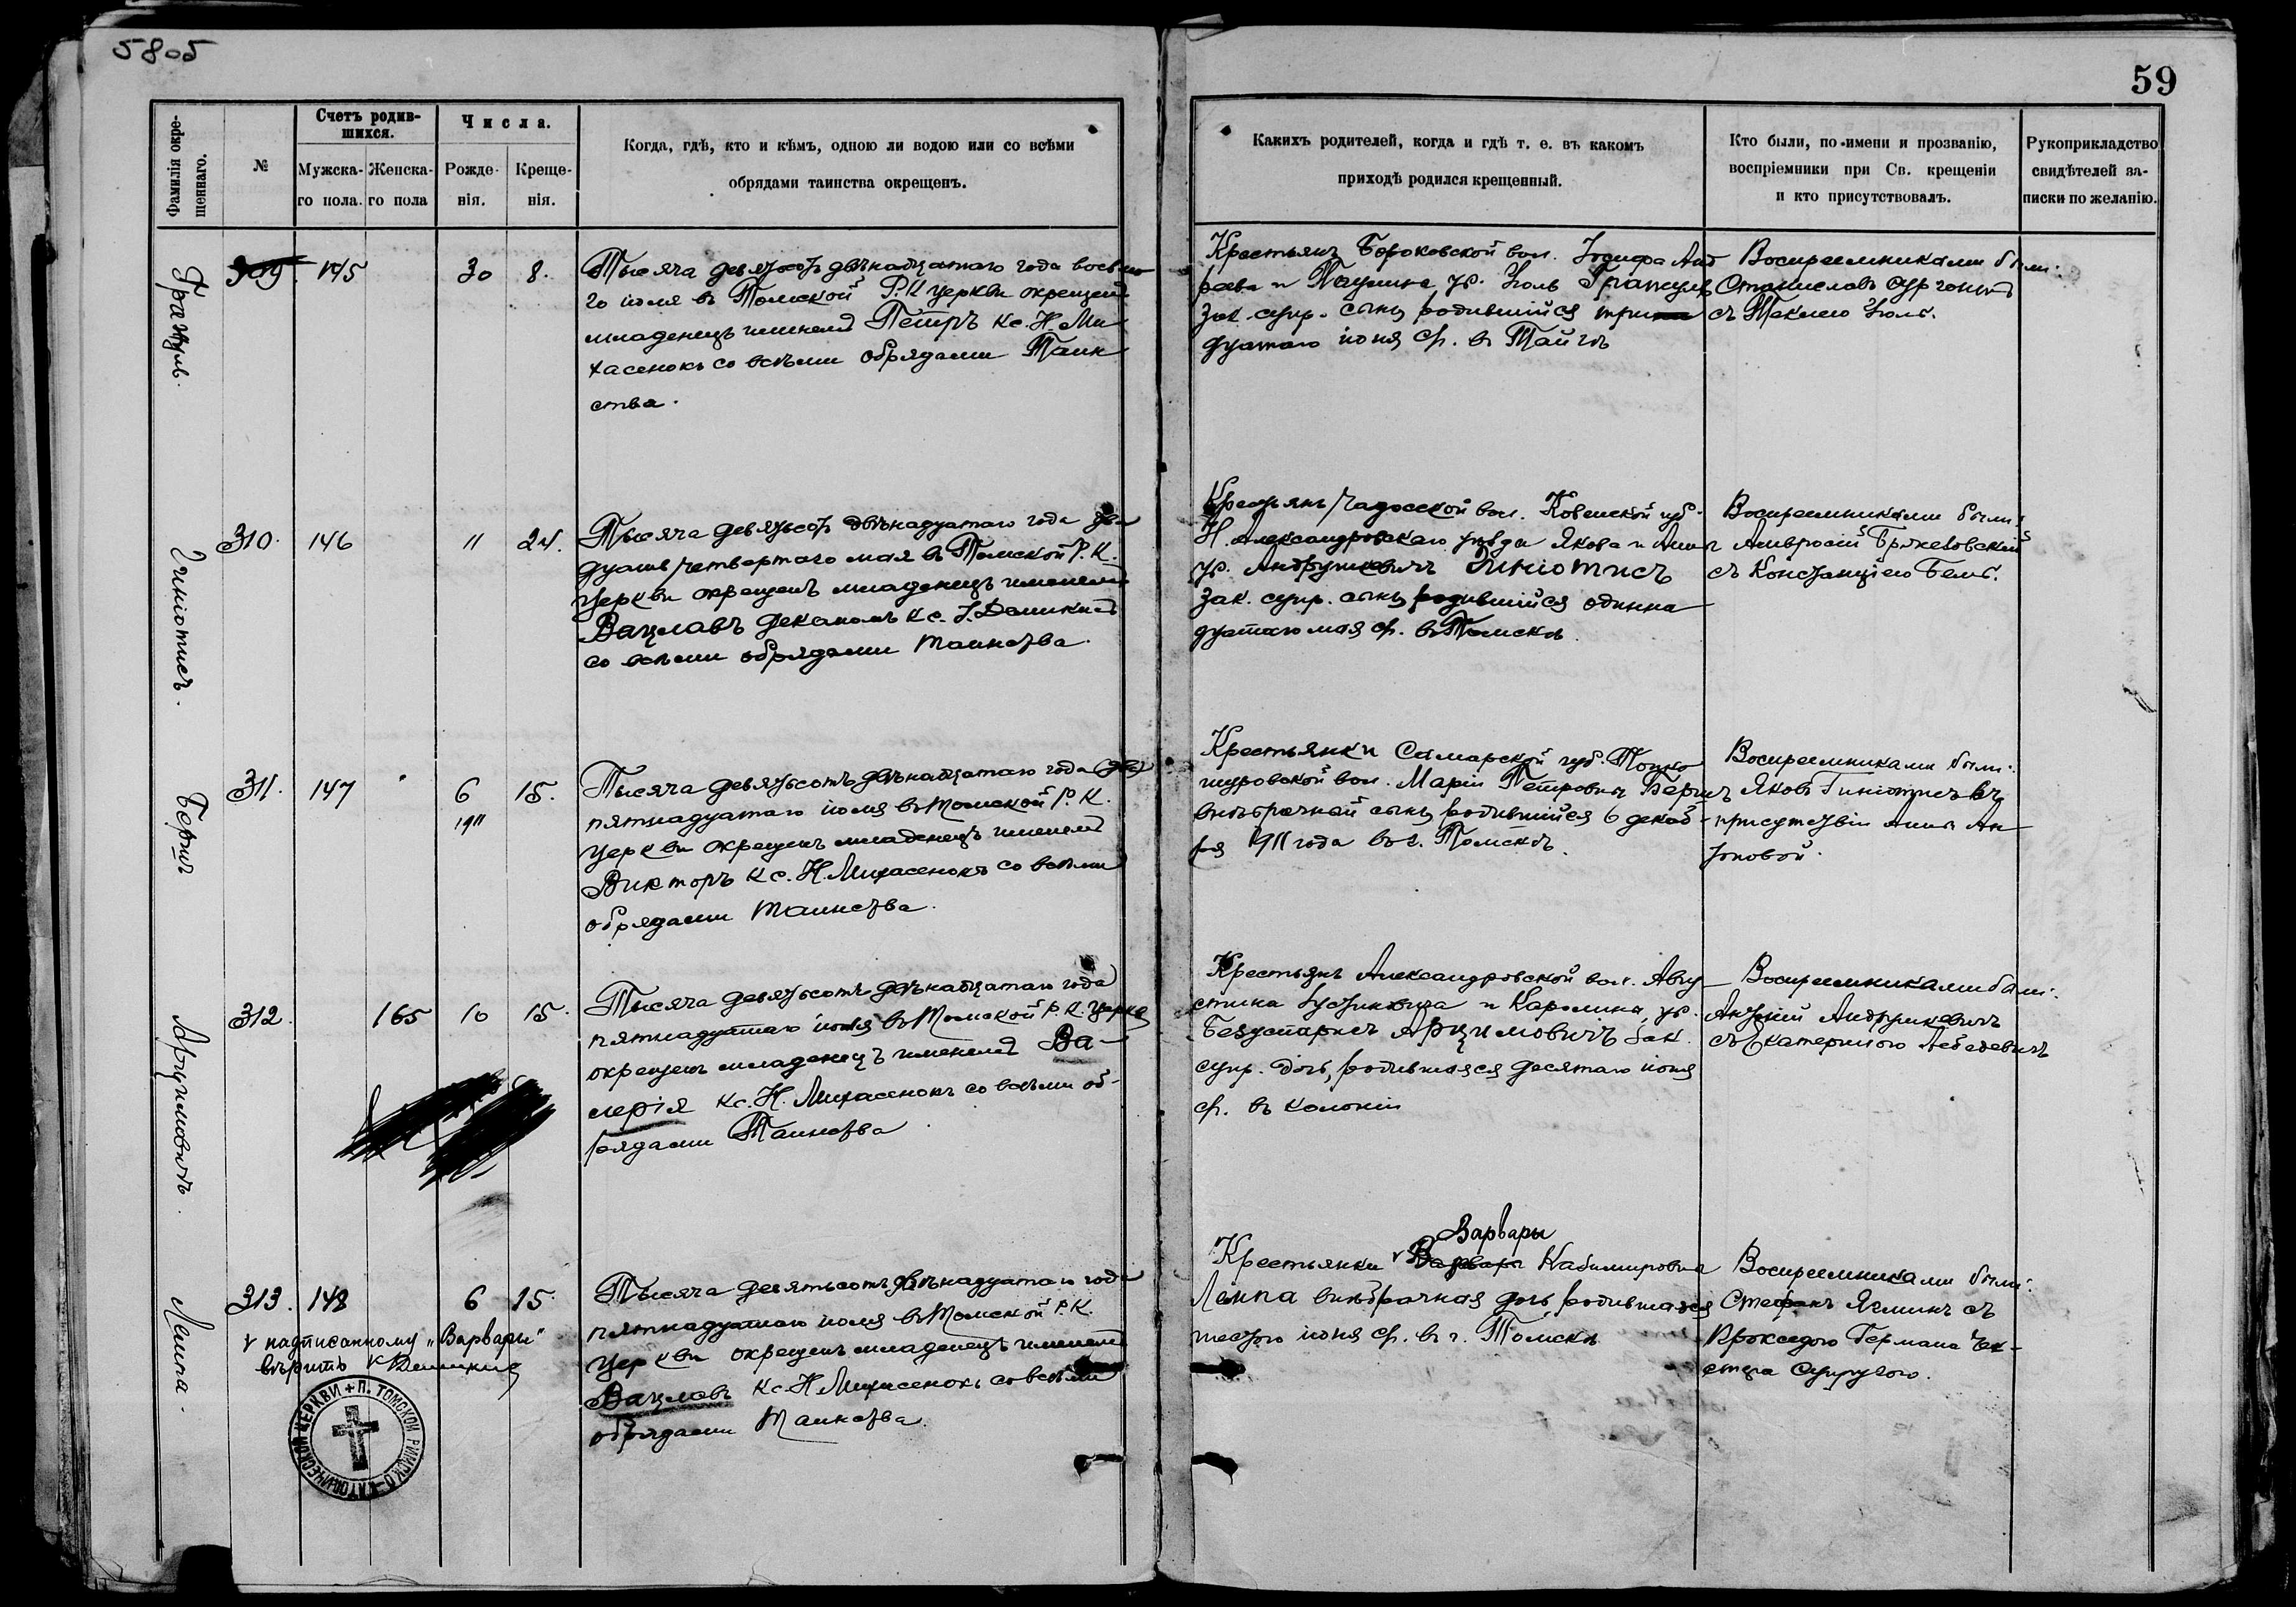 5805
59
Фамилія окре-
щеннаго.
№
Счетъ родив-
шихся.
Мужска-
го пола.
Женска-
го пола
Числа.
Рожде-
нія.
Креще-
нія.
Когда, гдѣ, кто и кѣмъ, одною ли водою или со всѣми
обрядами таинства окрещенъ.
Какихъ родителей, когда и гдѣ т. е. въ какомъ
приходѣ родился крещенный.
Кто были, по имени и прозванію,
воспріемники при Св. крещеніи
и кто присутствовалъ.
Рукоприкладство
свидѣтелей за-
писки по желанію.
309. 145 30 8.
Тысяча девятьсотъ двѣнадцатаго года восьма
го іюля въ Томской Р.К. церкви окрещенъ
младенецъ именемъ Петръ кс. Н. Ми
хасенокъ со всѣми обрядами Таин
ства.
Крестьянъ вол. Іосифа Анд
реева и ур.
зак. супр. сынъ родившійся три
дцатаго іюня с.г. въ Тайгѣ
Воспреемниками были:
Станиславъ
съ Теклею
310. 146 11 24.
Тысяча девятьсотъ двѣнадцатаго года два
дцать четвертаго мая въ Томской Р.К.
церкви окрещенъ младенецъ именемъ
Вацлавъ деканомъ кс. І. Демикисъ
со всѣми обрядами таинства.
Крестьянъ Чадосской вол. Ковенской губ.
Н. Александровскаго уѣзда Якова и Анны
ур. Андрушкевичъ Гиніотисъ
зак. супр. сынъ родившійся одинна
дцатаго мая с.г. въ Томскѣ.
Воспреемниками были:
Амвросій
съ Констанціею
Гиніотисъ.
311. 147 6 15.
1911
Беричъ
Тысяча девятьсотъ двѣнадцатаго года
пятнадцатаго іюля въ Томской Р.К.
церкви окрещенъ младенецъ именемъ
Викторъ кс. Н. Михасенокъ со всѣми
обрядами таинства.
Крестьянки Самарской губ.
вол. Маріи Петровны Беричъ
внѣбрачный сынъ родившійся 6 декаб-
ря 1911 года въ г. Томскѣ.
Воспреемниками были:
Яковъ Гиніотисъ въ
присутствіи Анны Ан
тоновой.
312. 165 10 15.
Арцимовичъ.
Тысяча девятьсотъ двѣнадцатаго года
пятнадцатаго іюля въ Томской Р.К. церкв
окрещенъ младенецъ именемъ Ва-
лерія кс. Н. Михасенокъ со всѣми об-
рядами Таинства.
Крестьянъ Александровской вол. Авгу-
стина Іустиновича и Каролины ур.
Арцимовичъ зак.
супр. дочь, родившаяся десятаго іюня
с.г. въ колоніи
Воспреемниками были:
Антоній Андрушкевичъ
съ Екатериною Лебедевичъ
313. 148 6 15.
Лемпа.
v надписанному „Варвары"
вѣрить К Демикисъ
Тысяча девятьсотъ двѣнадцатаго года
пятнадцатаго іюля въ Томской Р.К.
церкви окрещенъ младенецъ именемъ
Вацлавъ кс. Н. Михасенокъ со всѣми
обрядами таинства.
Варвары
Крестьянки v Варвары Казимировны
Лемпа внѣбрачная дочь, родившаяся
шестого іюня с.г. въ г. Томскѣ
Воспреемниками были:
Стефанъ Ясминъ съ
Проксидою Германа
супругою.
П. ТОМСКОЙ РИМСКО-КАТОЛИЧЕСКОЙ ЦЕРКВИ +